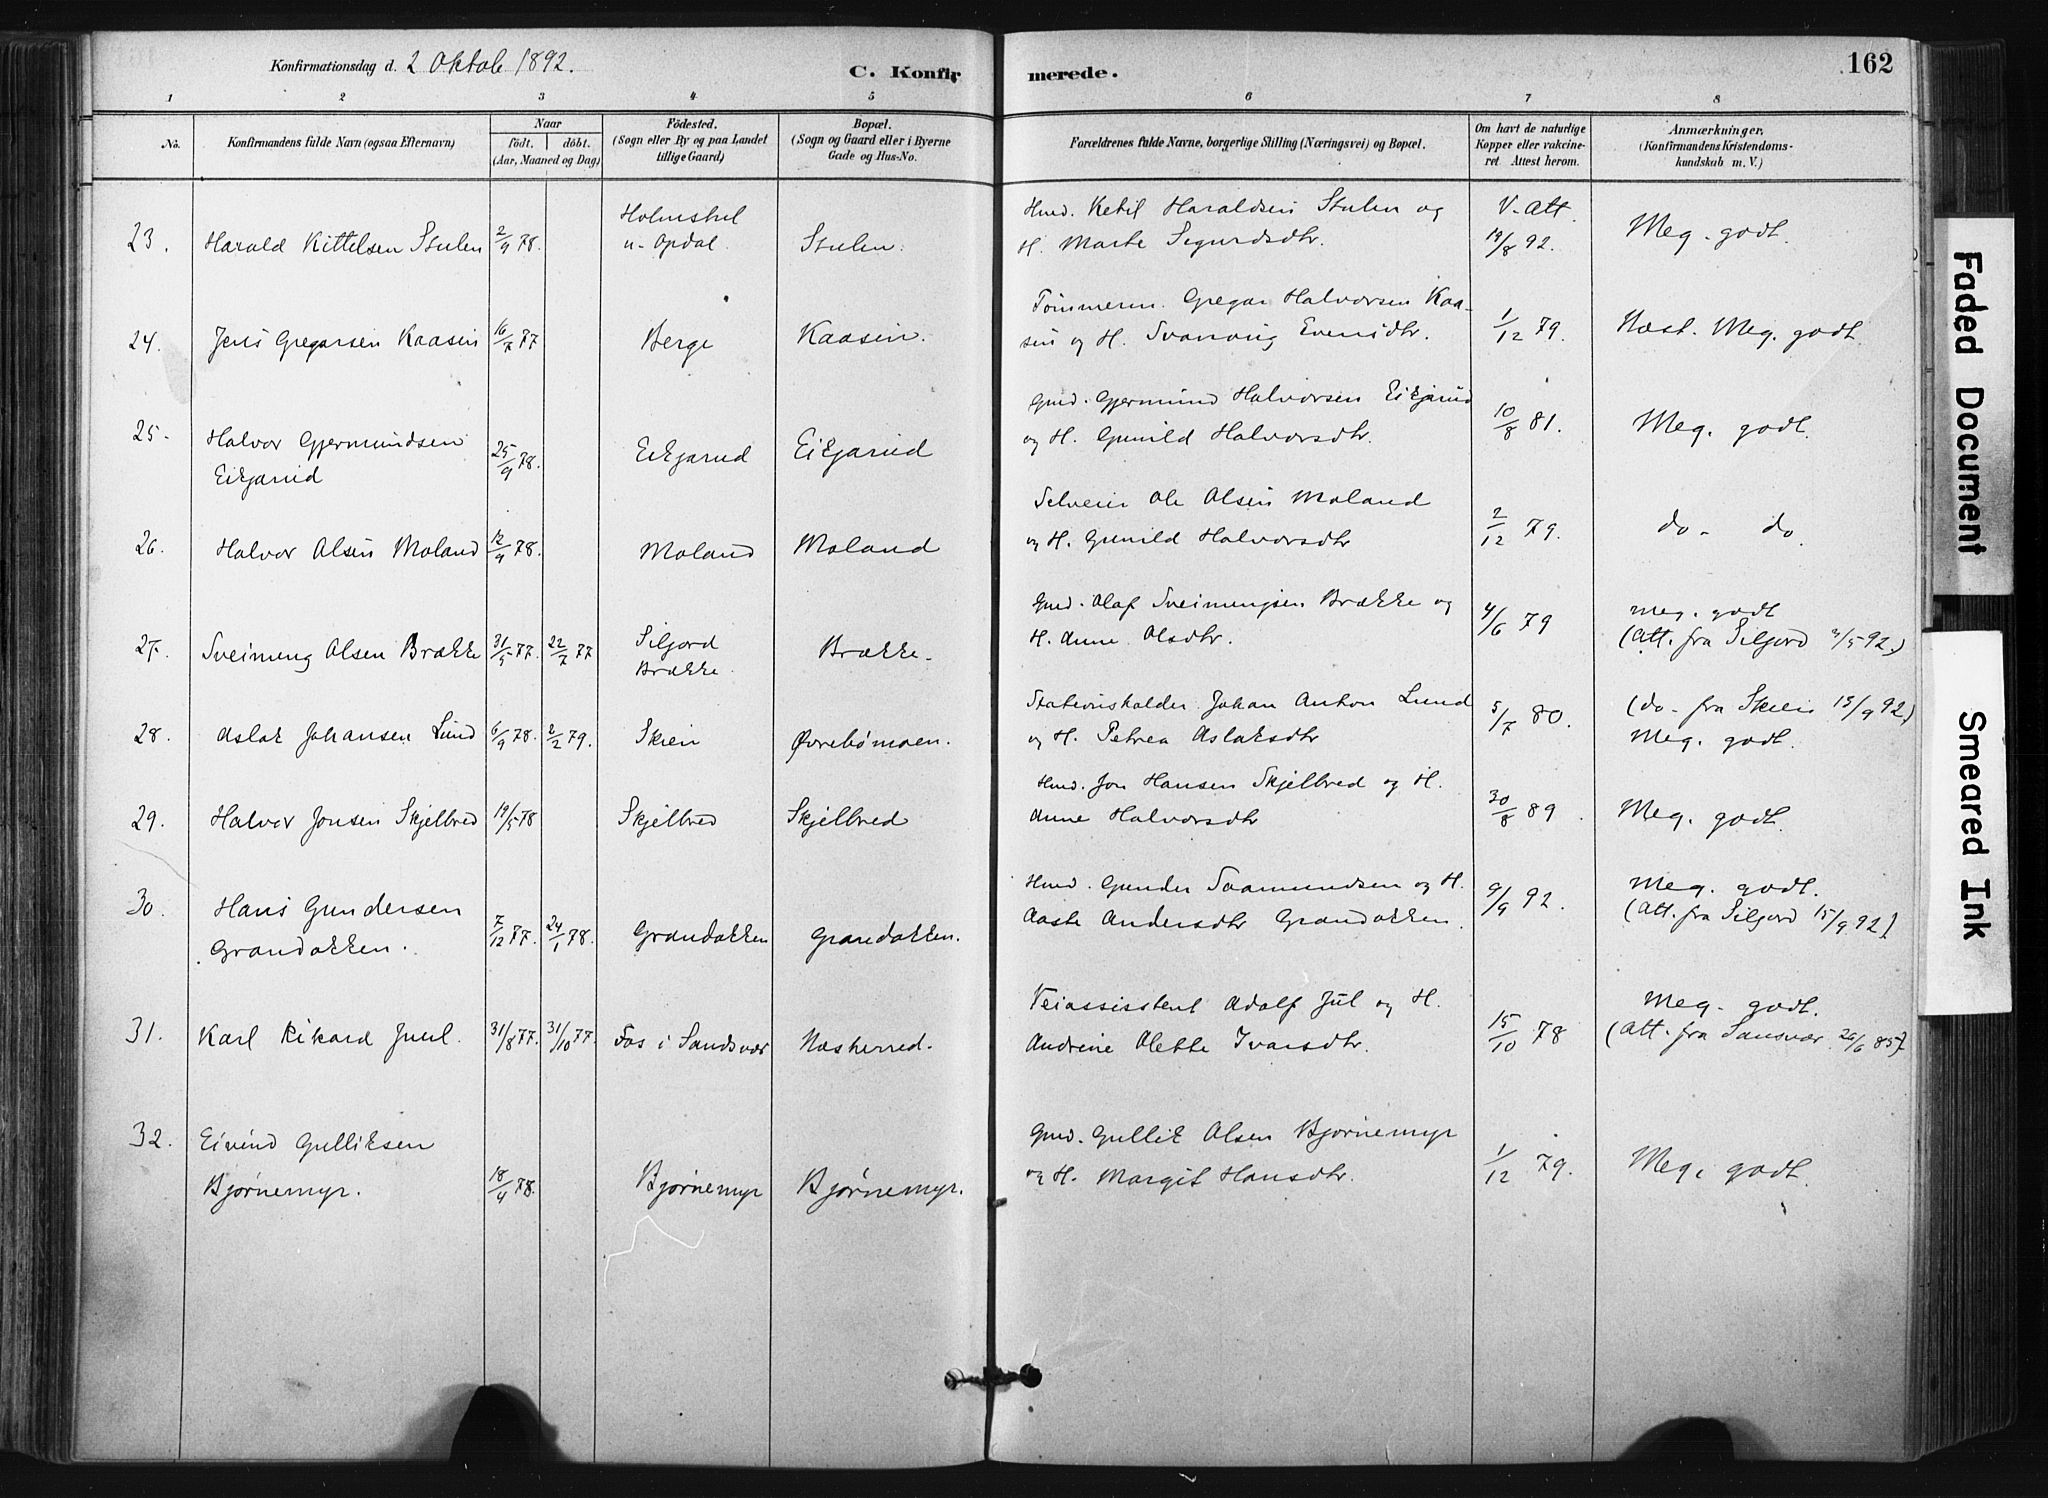 Konfirmationsdag d. 2 Oktob 1892.
C. Konfirmerede.
162
1 2 3 4 5 6 7 8
No.
Konfirmandens fulde Navn (ogsaa Efternavn)
Naar
födt. döbt.
(Aar, Maaned og Dag)
Födested.
(Sogn eller By og paa Landet
tillige Gaard)
Bopæl.
(Sogn og Gaard eller i Byerne
Gade og Hus-No.
Forældrenes fulde Navne, borgerlige Stilling (Næringsvei) og Bopæl.
Om havt de naturlige
Kopper eller vakcine-
ret Attest herom.
Anmærkninger.
(Konfirmandens Kristendoms-
kundskab m. V.)
23. Harald Kittelsen Stulen 2/9 78. Stulen.
Opdal.
Ketil Haraldsen Stulen og
H. Marte Sigurdsdtr.
V. Att.
19/8 92.
Meg. godt.
24. Jens Gregarsen Kaasen 16/7 77 Berge Kaasen.
Gregar Halvorsen Kaa-
sen og H. Svanaug Evensdtr.
1/12 79.
Næst. Meg. godt.
25. Halvor Gjermundsen
Eikjarud 25/9 78. Eikjarud Eikjarud
Gmd. Gjermund Halvorsen Eikjarud
og H. Gunild Halvorsdtr.
10/8 81.
Meg. godt.
26. Halvor Olsen Moland 12/9 78. Moland Moland
Selveier Ole Olsen Moland
og H. Gunild Halvorsdtr
2/12 79.
do - do.
27. Sveinung Olsen Brække 31/5 77. 22/7 77
Siljord
Brække. Brække.
Gmd. Olaf Sveinungsen Brække og
H. Anne Olsdtr.
4/6 79
Meg. godt
(Att. fra Siljord 92.)
28. Aslak Johansen Lund 6/9 78. 2/2 79. Skien Øvrebømoen.
Stationsholder Johan Anton Lund
og H. Petrea Aslaksdtr
5/7 80.
(do - fra Skien 13/9 92)
Meg. godt.
29. Halvor Jonsen Skjelbred 19/5 78 Skjelbred Skjelbred
Hmd. Jon Hansen Skjelbred og H.
Anne Halvorsdtr
30/8 89.
Meg. godt.
30. Hans Gundersen
Grandokken. 7/12 77. 24/1 78. Grandokken Grandokken.
Hmd. Gunder Saamundsen og H.
Aaste Andersdtr Grandokken
9/9 92.
Meg. godt.
(Att. fra Siljord 15/9 92).
31. Karl Rikard Juul. 31/8 77. 31/10 77. Fos i Sandsvær Næsherred.
Veiassistent Adolf Jul og H.
Andrine Olette Ivarsdtr.
15/10 78
Meg. godt.
(Att. fra Sansvær 26/6 85).
32. Eivind Gulliksen
Bjørnemyr. 18/4 78. Bjørnemyr Bjørnemyr.
Gmd. Gullik Olsen Bjørnemyr
og H. Margit Hansdtr.
1/12 79.
Meg. godt.
Faded Document
Smeared Ink